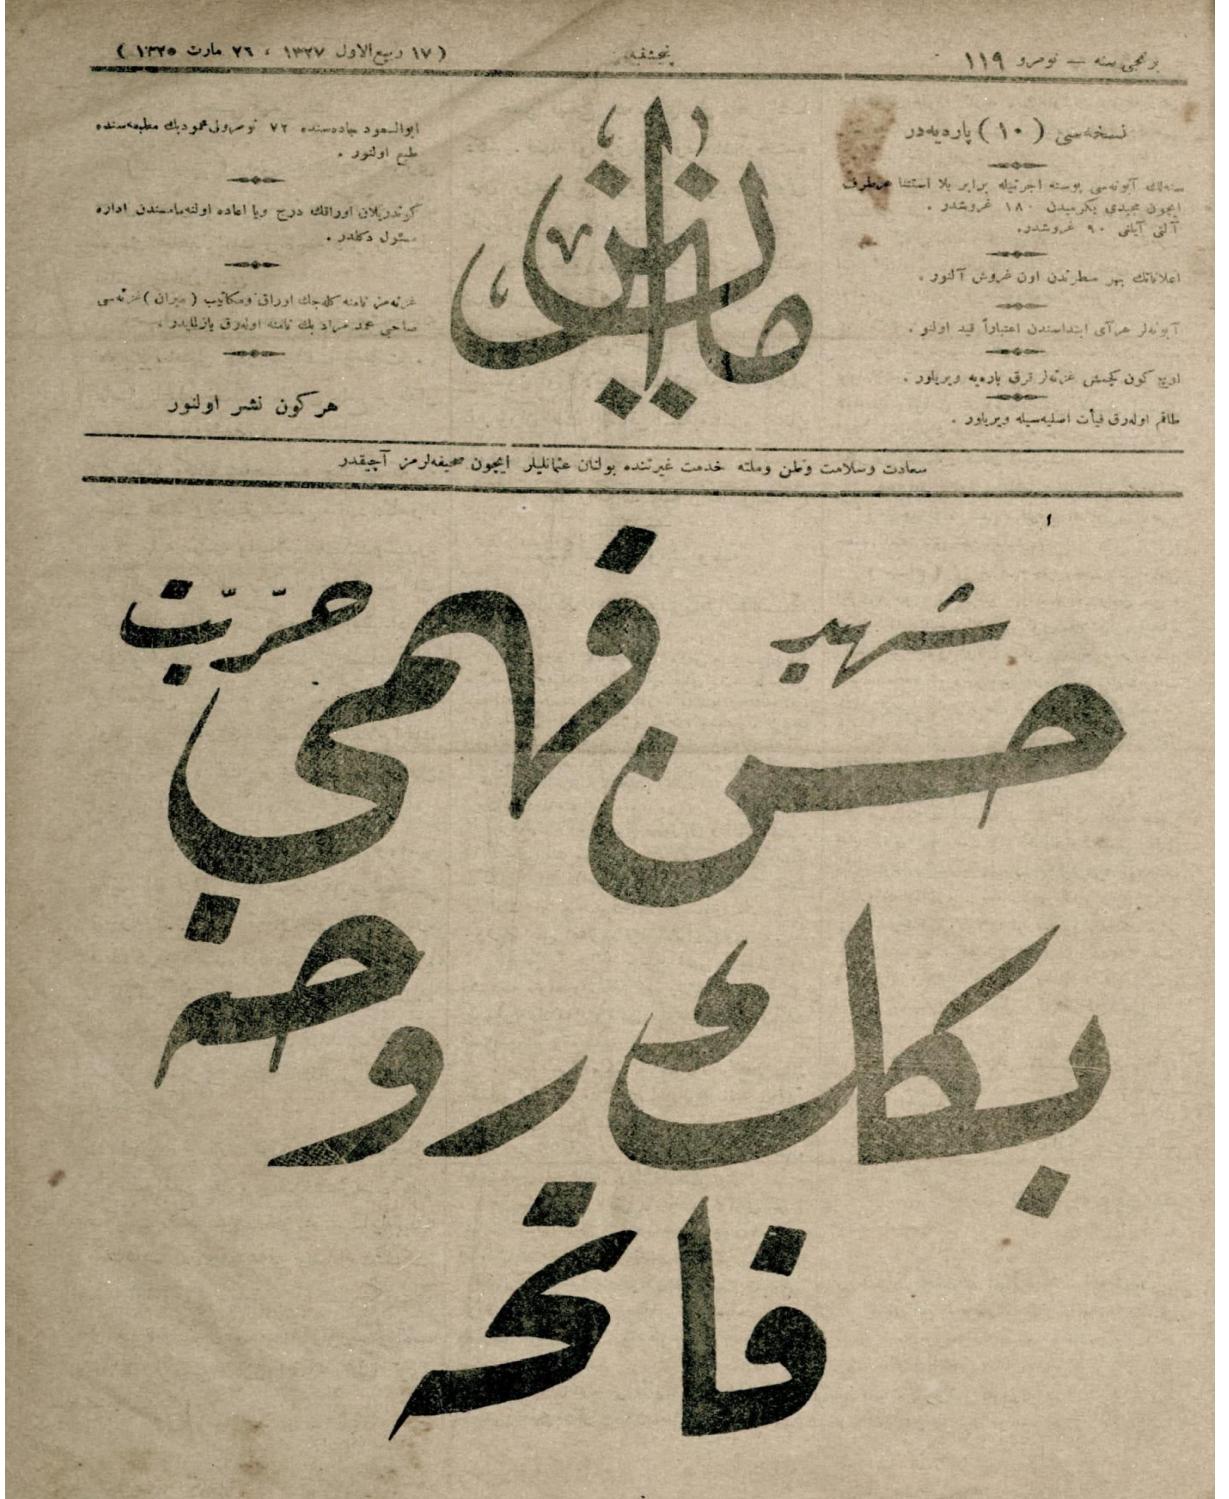 برنجی سنه — نومرو ١١٩
پنجشنبه
( ١٧ ربیع‌الاول ١٣٢٧ ، ٢٦ مارت ١٣٢٥ )
نسخه‌سی ( ١٠ ) پاره‌یه‌در
سنه‌لك آبونه‌سی پوسته اجرتیله برابر بلا استثنا هرطرف
ایچون مجیدی یكرمیدن ١٨٠ غروشدر .
آلتی آیلغی ٩٠ غروشدر.
اعلاناتك بهر سطرندن اون غروش آلنور .
آبونه‌لر هرآی ابتداسندن اعتباراً قید اولنو .
اویچ كون كچمش غزته‌لر قرق پاره‌یه ویریلور .
طاقم اوله‌رق فیأت اصلیه‌سیله ویریلور .
میزان
ابوالسعود جاده‌سنده ٧٢ نومرولی محمودبك مطبعه‌سنده
طبع اولنور .
كوندریلان اوراقك درج ویا اعاده اولنه‌مامسندن اداره
مسئول دكلدر .
غزته‌مز نامنه كله‌جك اوراق ومكاتیب ( میزان ) غزته‌سی
صاحبی محمد مراد بك نامنه اوله‌رق یازلمالیدر .
هركون نشر اولنور
سعادت وسلامت وطن وملته خدمت غیرتنده بولنان عثمانلیلر ایچون صحیفه‌لرمز آچیقدر
شهید حرّیّت
حسن فهمی
بكك روحنه
فاتحه